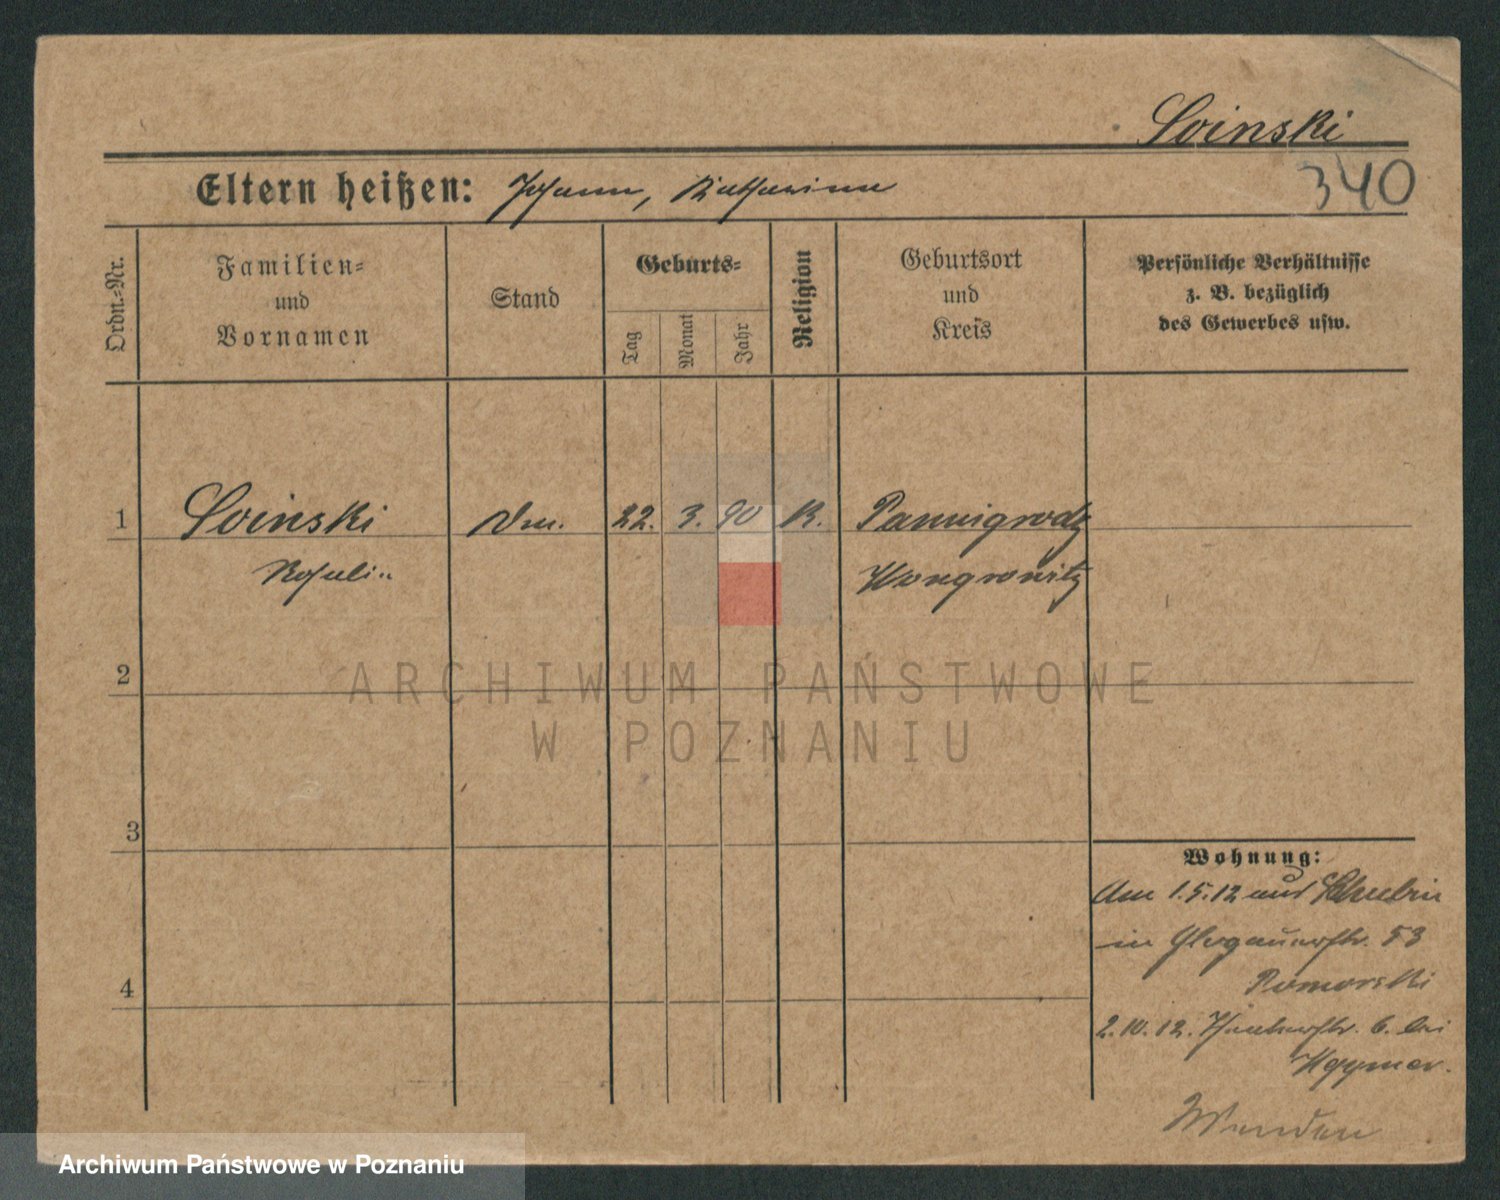 Soinski
340
Eltern heißen: Johann, Katharina
Ordn.-Nr.
Familien-
und
Vornamen
Stand
Geburts-
Tag
Monat
Jahr
Religion
Geburtsort
und
Kreis
Persönliche Verhältnisse
z. B. bezüglich
des Gewerbes usw.
1
Soinski
22. 3. 90
K.
Pannigrodz
Wongrowitz
2
ARCHIWUM PAŃSTWOWE
W POZNANIU
3
Wohnung:
Am 1.5.12 aus Schubin
in Glogauerstr. 53
Pomorski
4
2.10.12. 6. bei
Wenden
Archiwum Państwowe w Poznaniu